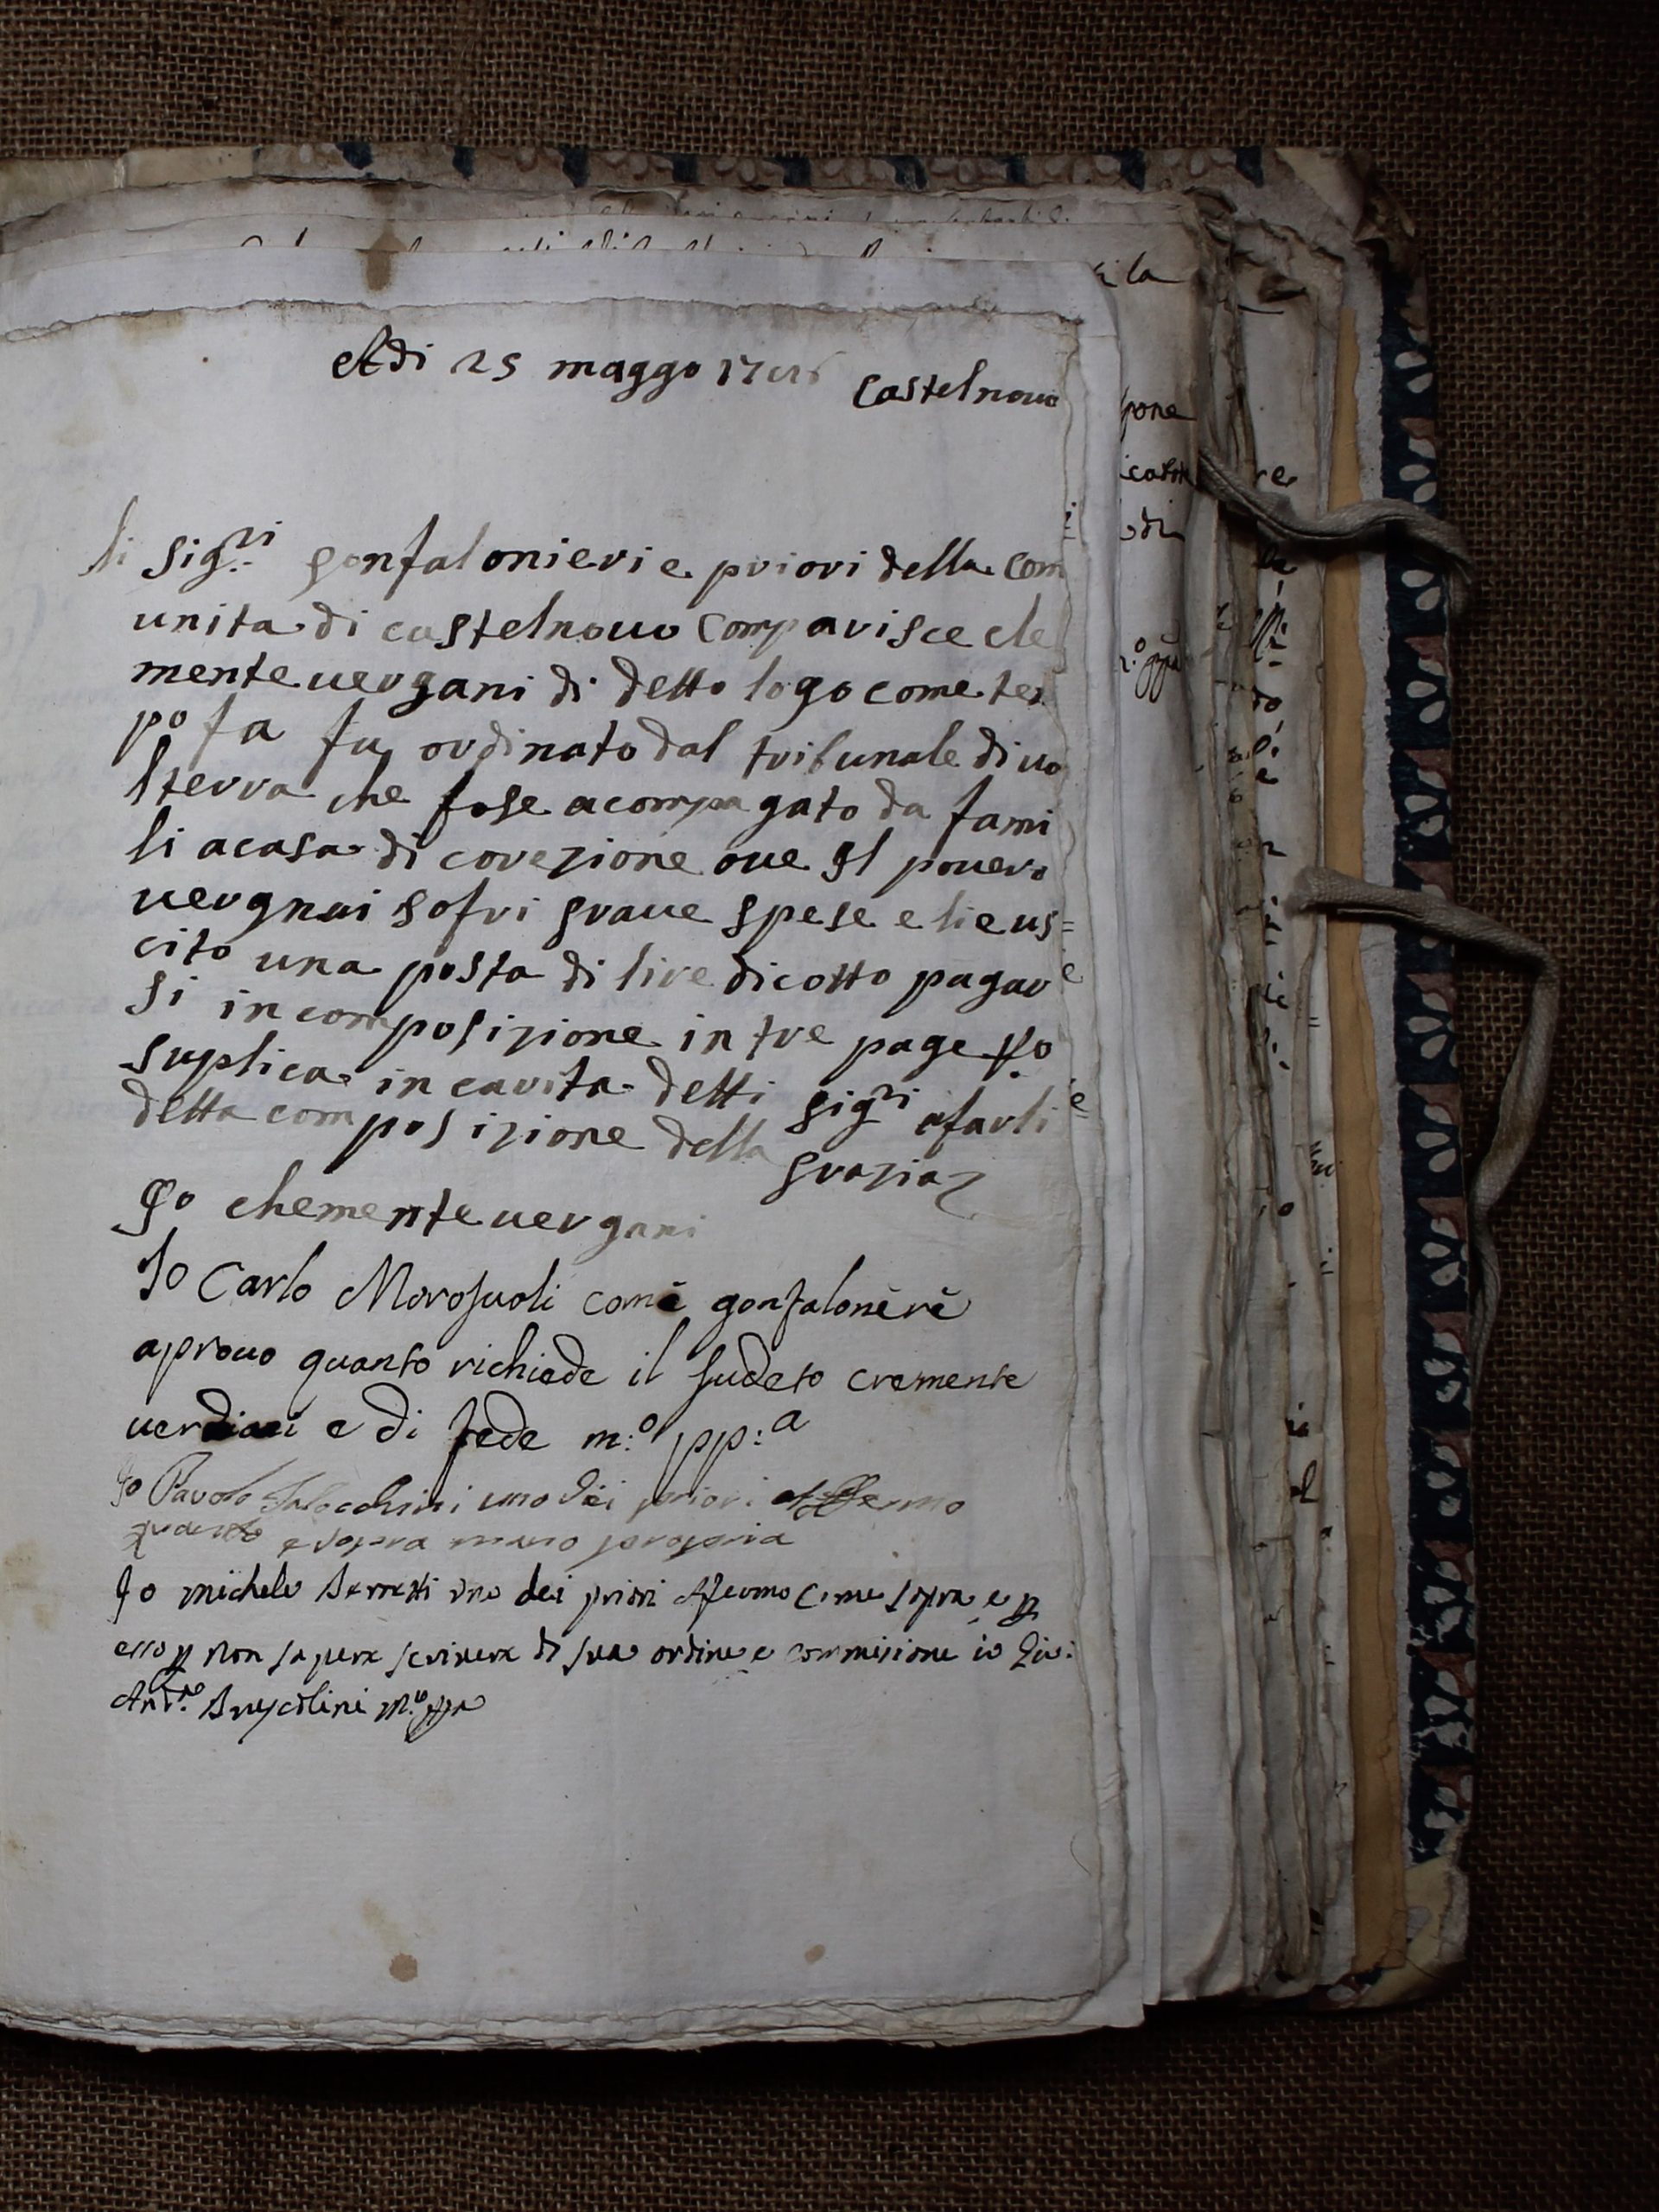 Adi 25 maggo
Castelnouo
li sig:ri gonfalonieri e priori della com
unita di castelnouo comparisce cle
mente uergani di detto logo come tem
po fa fu ordinato dal tribunale di uo
lterra che fose acompagato da fami
li acasa di corezione oue gl pouero
uergnai sofri graue spese e lie us=
cito una posta di lire dicotto pagare
si in composizione in tre page
suplica in carita detti sig:ri afarli
detta composizione della
grazia
Io chemente uergani
Io Carlo Morosuoli come gonfalonere
aprouo quanto richiede il sudeto cremente
e di fede m:o pp:a
Io Pavolo uno dei priori affermo
quanto e sopra mano propria
Io michele Serretti uno dei priori Afermo come sopra e p
esso p non sapere scriuere di sua ordine e commisione io Gio:
And:o m:o ppa